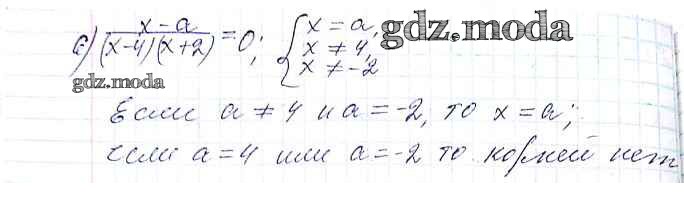 6) x-a / (x-4)(x+2) = 0; { x = a,
x ≠ 4,
x ≠ -2
gdz.moda
gdz.moda
Если a ≠ 4 и a = -2, то x = a;
если a = 4 или a = -2 то корней нет